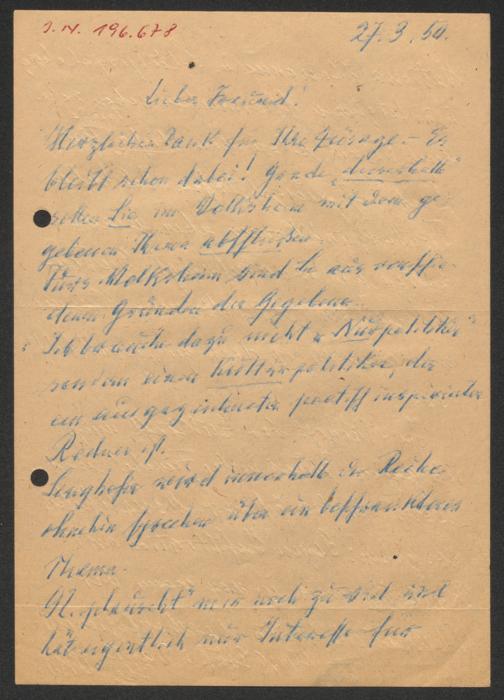 J.N. 196.678
27.3.50.
Lieber Freund!
Herzlichen Dank für Ihre Zusage. – Es
bleibt schon dabei! Gerade „dieserhalb"
sollen Sie im Volksheim mit dem ge-
gebenen Thema abschließen.
Fürs Volksheim sind Sie aus verschie-
denen Gründen der Gegebene.
Ich brauche dazu nicht „Nurpolitiker"
sondern einen Kulturpolitiker der
ein ausgezeichneter inspirierter
Redner ist.
wird innerhalb der Reihe
ohnehin sprechen über ein besonderes
Thema.
mir noch zu und
hat eigentlich nur Interesse für